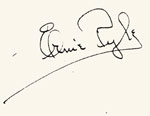 Ernie Pyle